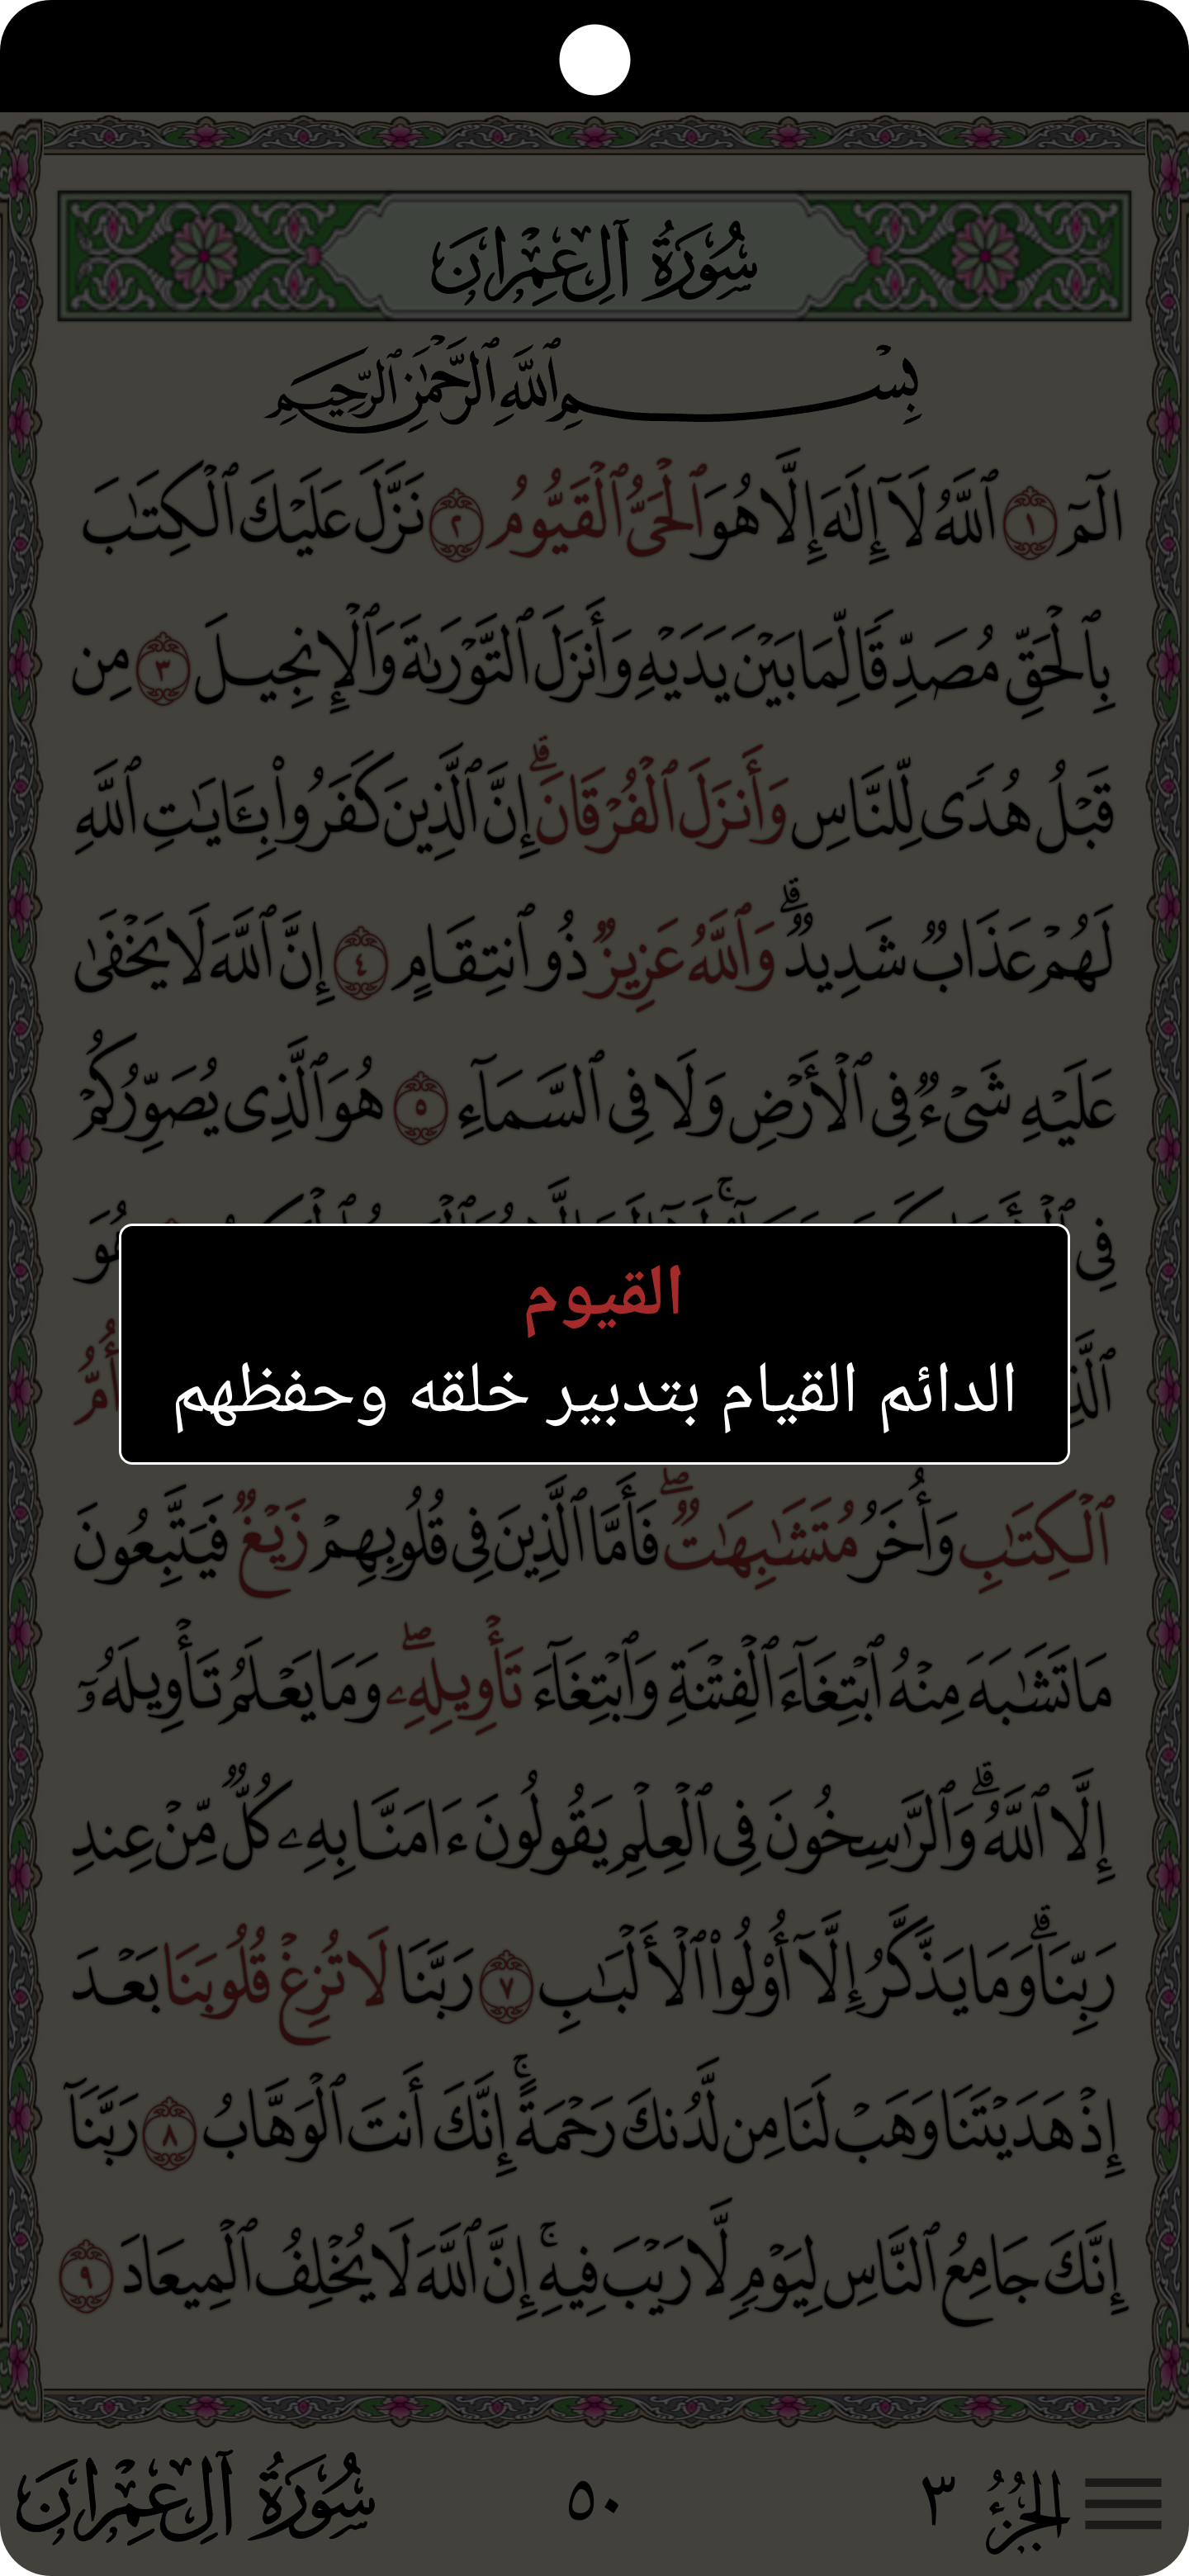 سُورَةُ آلِ عِمْرَانَ
بِسْمِ ٱللَّهِ ٱلرَّحْمَٰنِ ٱلرَّحِيمِ
الٓمٓ ١ ٱللَّهُ لَآ إِلَٰهَ إِلَّا هُوَ ٱلْحَىُّ ٱلْقَيُّومُ ٢ نَزَّلَ عَلَيْكَ ٱلْكِتَٰبَ
بِٱلْحَقِّ مُصَدِّقًا لِّمَا بَيْنَ يَدَيْهِ وَأَنزَلَ ٱلتَّوْرَىٰةَ وَٱلْإِنجِيلَ ٣ مِن
قَبْلُ هُدًى لِّلنَّاسِ وَأَنزَلَ ٱلْفُرْقَانَ ۗ إِنَّ ٱلَّذِينَ كَفَرُوا۟ بِـَٔايَٰتِ ٱللَّهِ
لَهُمْ عَذَابٌ شَدِيدٌ ۗ وَٱللَّهُ عَزِيزٌ ذُو ٱنتِقَامٍ ٤ إِنَّ ٱللَّهَ لَا يَخْفَىٰ
عَلَيْهِ شَىْءٌ فِى ٱلْأَرْضِ وَلَا فِى ٱلسَّمَآءِ ٥ هُوَ ٱلَّذِى يُصَوِّرُكُمْ
فِى هُوَ
القيوم
الدائم القيام بتدبير خلقه وحفظهم
أُمُّ
ٱلْكِتَٰبِ وَأُخَرُ مُتَشَٰبِهَٰتٌ ۖ فَأَمَّا ٱلَّذِينَ فِى قُلُوبِهِمْ زَيْغٌ فَيَتَّبِعُونَ
مَا تَشَٰبَهَ مِنْهُ ٱبْتِغَآءَ ٱلْفِتْنَةِ وَٱبْتِغَآءَ تَأْوِيلِهِۦ ۖ وَمَا يَعْلَمُ تَأْوِيلَهُۥٓ
إِلَّا ٱللَّهُ ۗ وَٱلرَّٰسِخُونَ فِى ٱلْعِلْمِ يَقُولُونَ ءَامَنَّا بِهِۦ كُلٌّ مِّنْ عِندِ
رَبِّنَا ۗ وَمَا يَذَّكَّرُ إِلَّآ أُو۟لُوا۟ ٱلْأَلْبَٰبِ ٧ رَبَّنَا لَا تُزِغْ قُلُوبَنَا بَعْدَ
إِذْ هَدَيْتَنَا وَهَبْ لَنَا مِن لَّدُنكَ رَحْمَةً ۚ إِنَّكَ أَنتَ ٱلْوَهَّابُ ٨ رَبَّنَآ
إِنَّكَ جَامِعُ ٱلنَّاسِ لِيَوْمٍ لَّا رَيْبَ فِيهِ ۚ إِنَّ ٱللَّهَ لَا يُخْلِفُ ٱلْمِيعَادَ ٩
الجُزْءُ ٣ ٥٠ سُورَةُ آلِ عِمْرَانَ